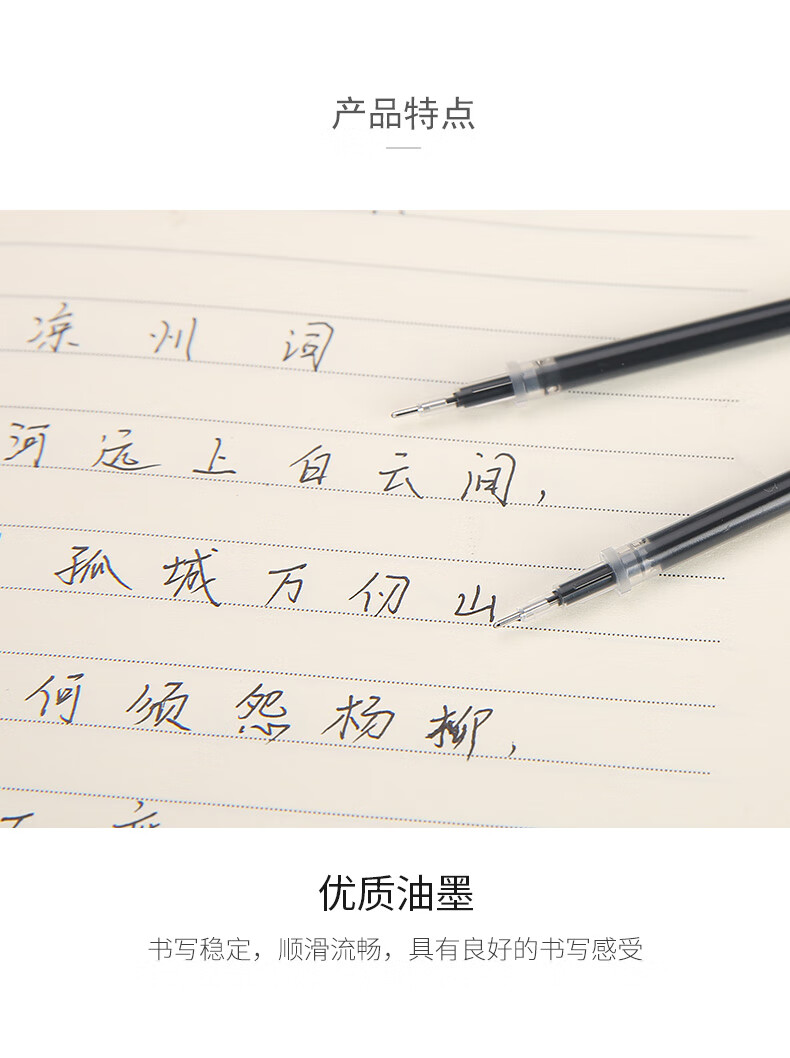 产品特点
凉州词
河远上白云间，
孤城万仞山
何须怨杨柳，
优质油墨
书写稳定，顺滑流畅，具有良好的书写感受